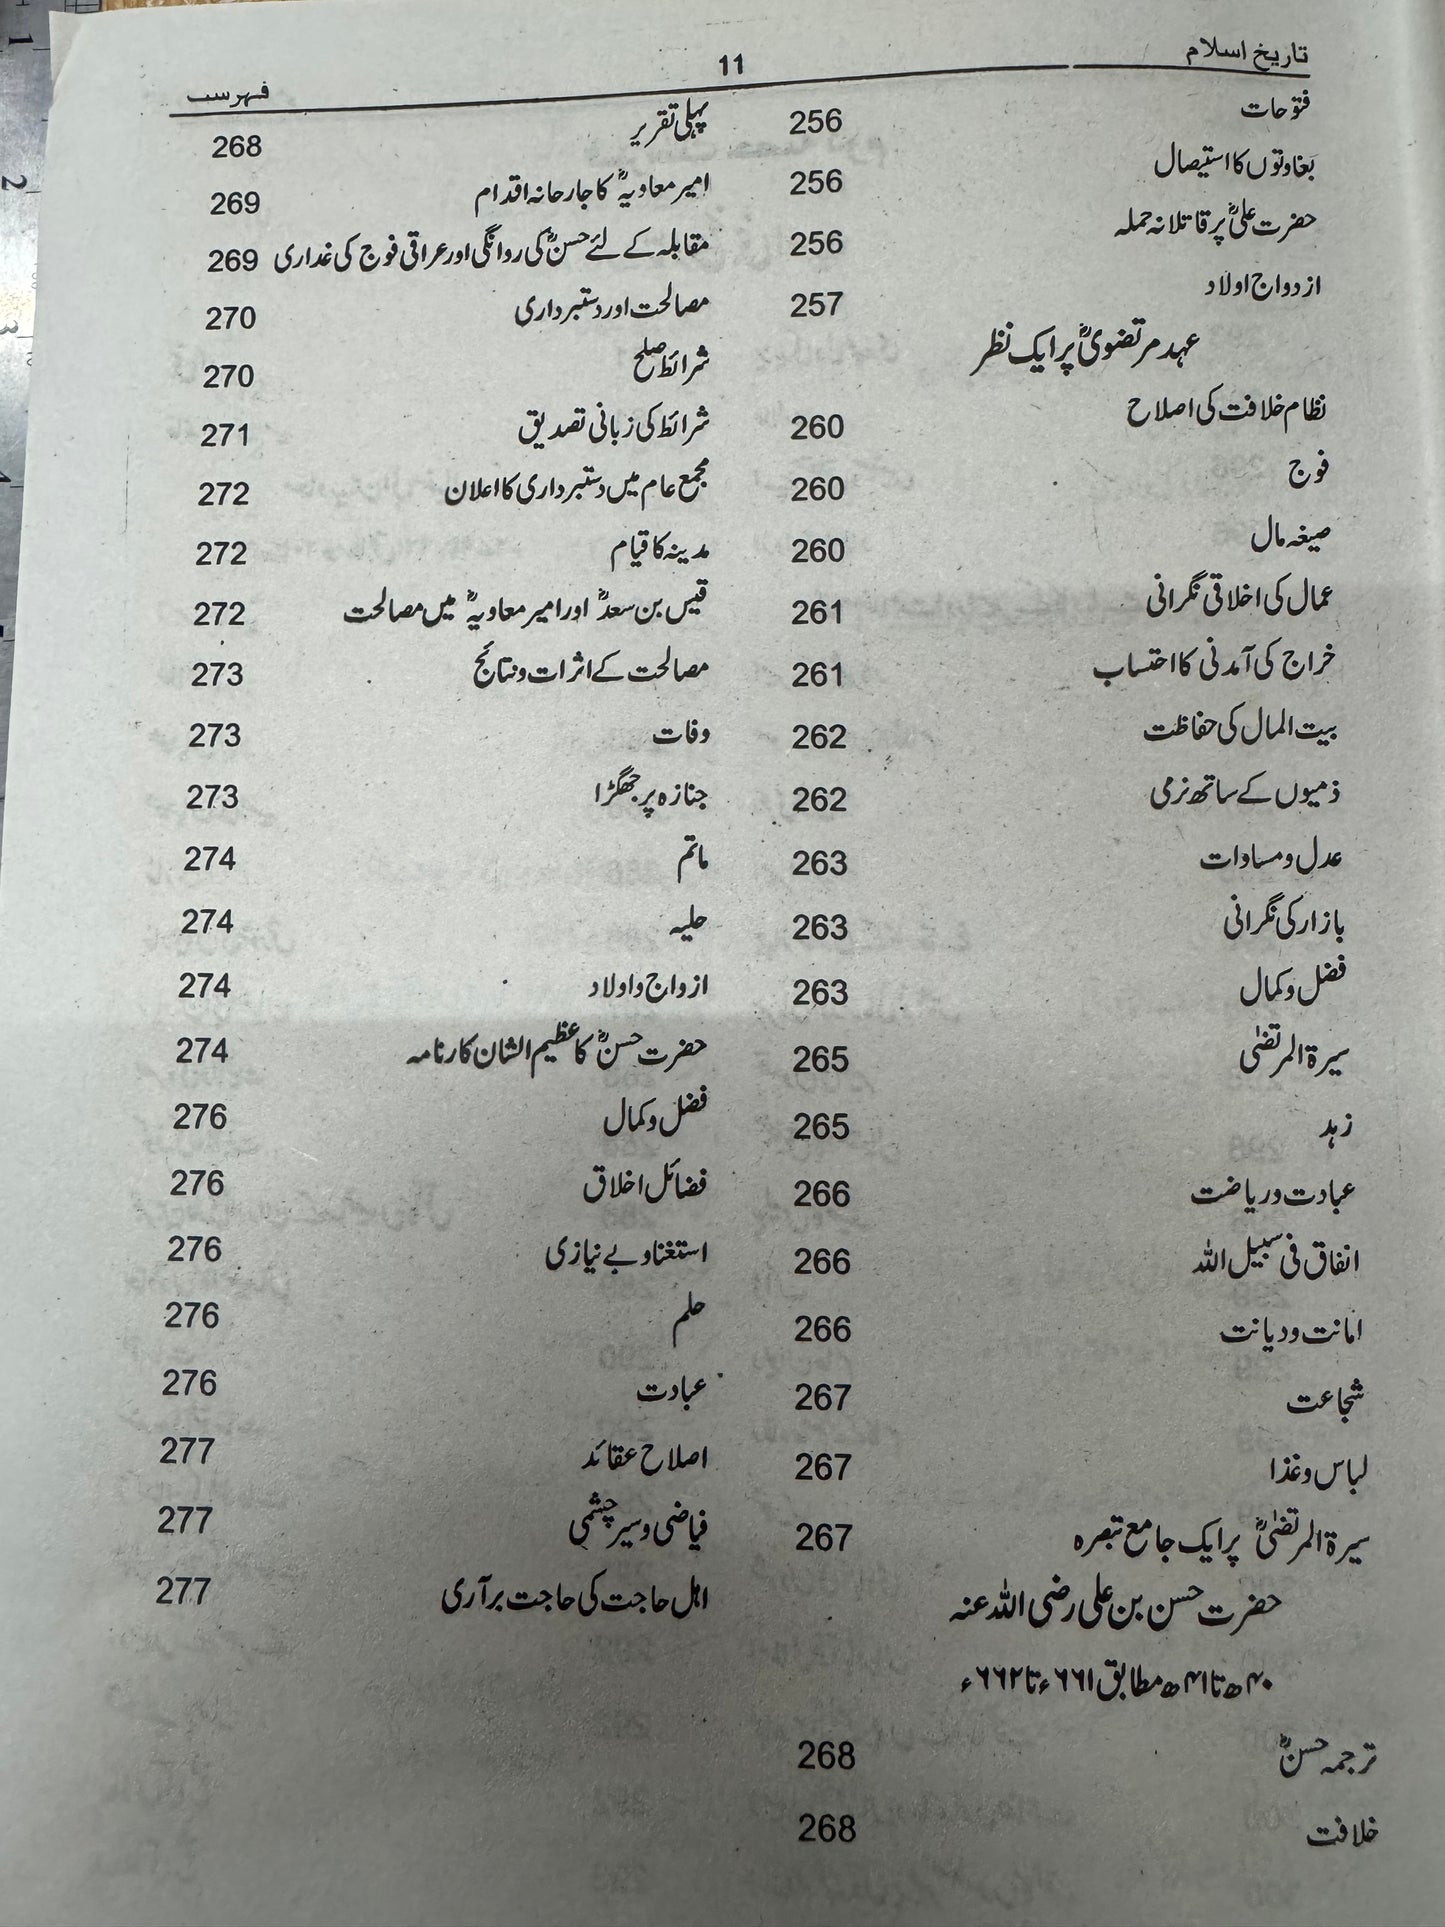 تاریخ اسلام
11
فہرست
فتوحات 256
بغاوتوں کا استیصال 256
حضرت علیؓ پر قاتلانہ حملہ 256
ازدواج اولاد 257
عہد مرتضویؓ پر ایک نظر
نظام خلافت کی اصلاح 260
فوج 260
صیغہ مال 260
عمال کی اخلاقی نگرانی 261
خراج کی آمدنی کا احتساب 261
بیت المال کی حفاظت 262
ذمیوں کے ساتھ نرمی 262
عدل و مساوات 263
بازار کی نگرانی 263
فضل و کمال 263
سیرۃ المرتضیٰ 265
زہد 265
عبادت و ریاضت 266
انفاق فی سبیل اللہ 266
امانت و دیانت 266
شجاعت 267
لباس و غذا 267
سیرۃ المرتضیٰؓ پر ایک جامع تبصرہ 267
حضرت حسن بن علی رضی اللہ عنہ
۴۰ھ تا ۴۱ھ مطابق ۶۶۱ء تا ۶۶۲ء
ترجمہ حسنؓ 268
خلافت 268
پہلی تقریر 268
امیر معاویہؓ کا جارحانہ اقدام 269
مقابلہ کے لئے حسنؓ کی روانگی اور عراقی فوج کی غداری 269
مصالحت اور دستبرداری 270
شرائط صلح 270
شرائط کی زبانی تصدیق 271
مجمع عام میں دستبرداری کا اعلان 272
مدینہ کا قیام 272
قیس بن سعدؓ اور امیر معاویہؓ میں مصالحت 272
مصالحت کے اثرات و نتائج 273
وفات 273
جنازہ پر جھگڑا 273
ماتم 274
حلیہ 274
ازواج و اولاد 274
حضرت حسنؓ کا عظیم الشان کارنامہ 274
فضل و کمال 276
فضائل اخلاق 276
استغنا و بے نیازی 276
حلم 276
عبادت 276
اصلاح عقائد 277
فیاضی و سیر چشمی 277
اہل حاجت کی حاجت برآری 277